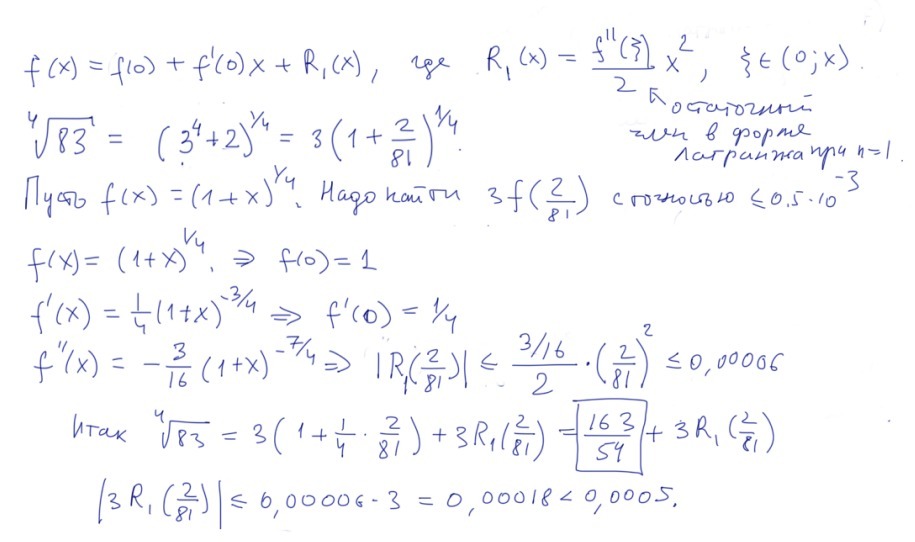 f(x) = f(0) + f'(0)x + R₁(x), где R₁(x) = f''(ξ)/2 x², ξ ∈ (0; x).
остаточный
член в форме
Лагранжа при n=1.
⁴√83 = (3⁴+2)^(1/4) = 3(1 + 2/81)^(1/4).
Пусть f(x) = (1+x)^(1/4). Надо найти 3f(2/81) с точностью ≤ 0.5·10⁻³
f(x) = (1+x)^(1/4). ⇒ f(0) = 1
f'(x) = 1/4 (1+x)^(-3/4) ⇒ f'(0) = 1/4
f''(x) = -3/16 (1+x)^(-7/4) ⇒ |R₁(2/81)| ≤ (3/16)/2 · (2/81)² ≤ 0,00006
Итак ⁴√83 = 3(1 + 1/4 · 2/81) + 3R₁(2/81) = 163/54 + 3R₁(2/81)
|3R₁(2/81)| ≤ 0,00006·3 = 0,00018 < 0,0005.